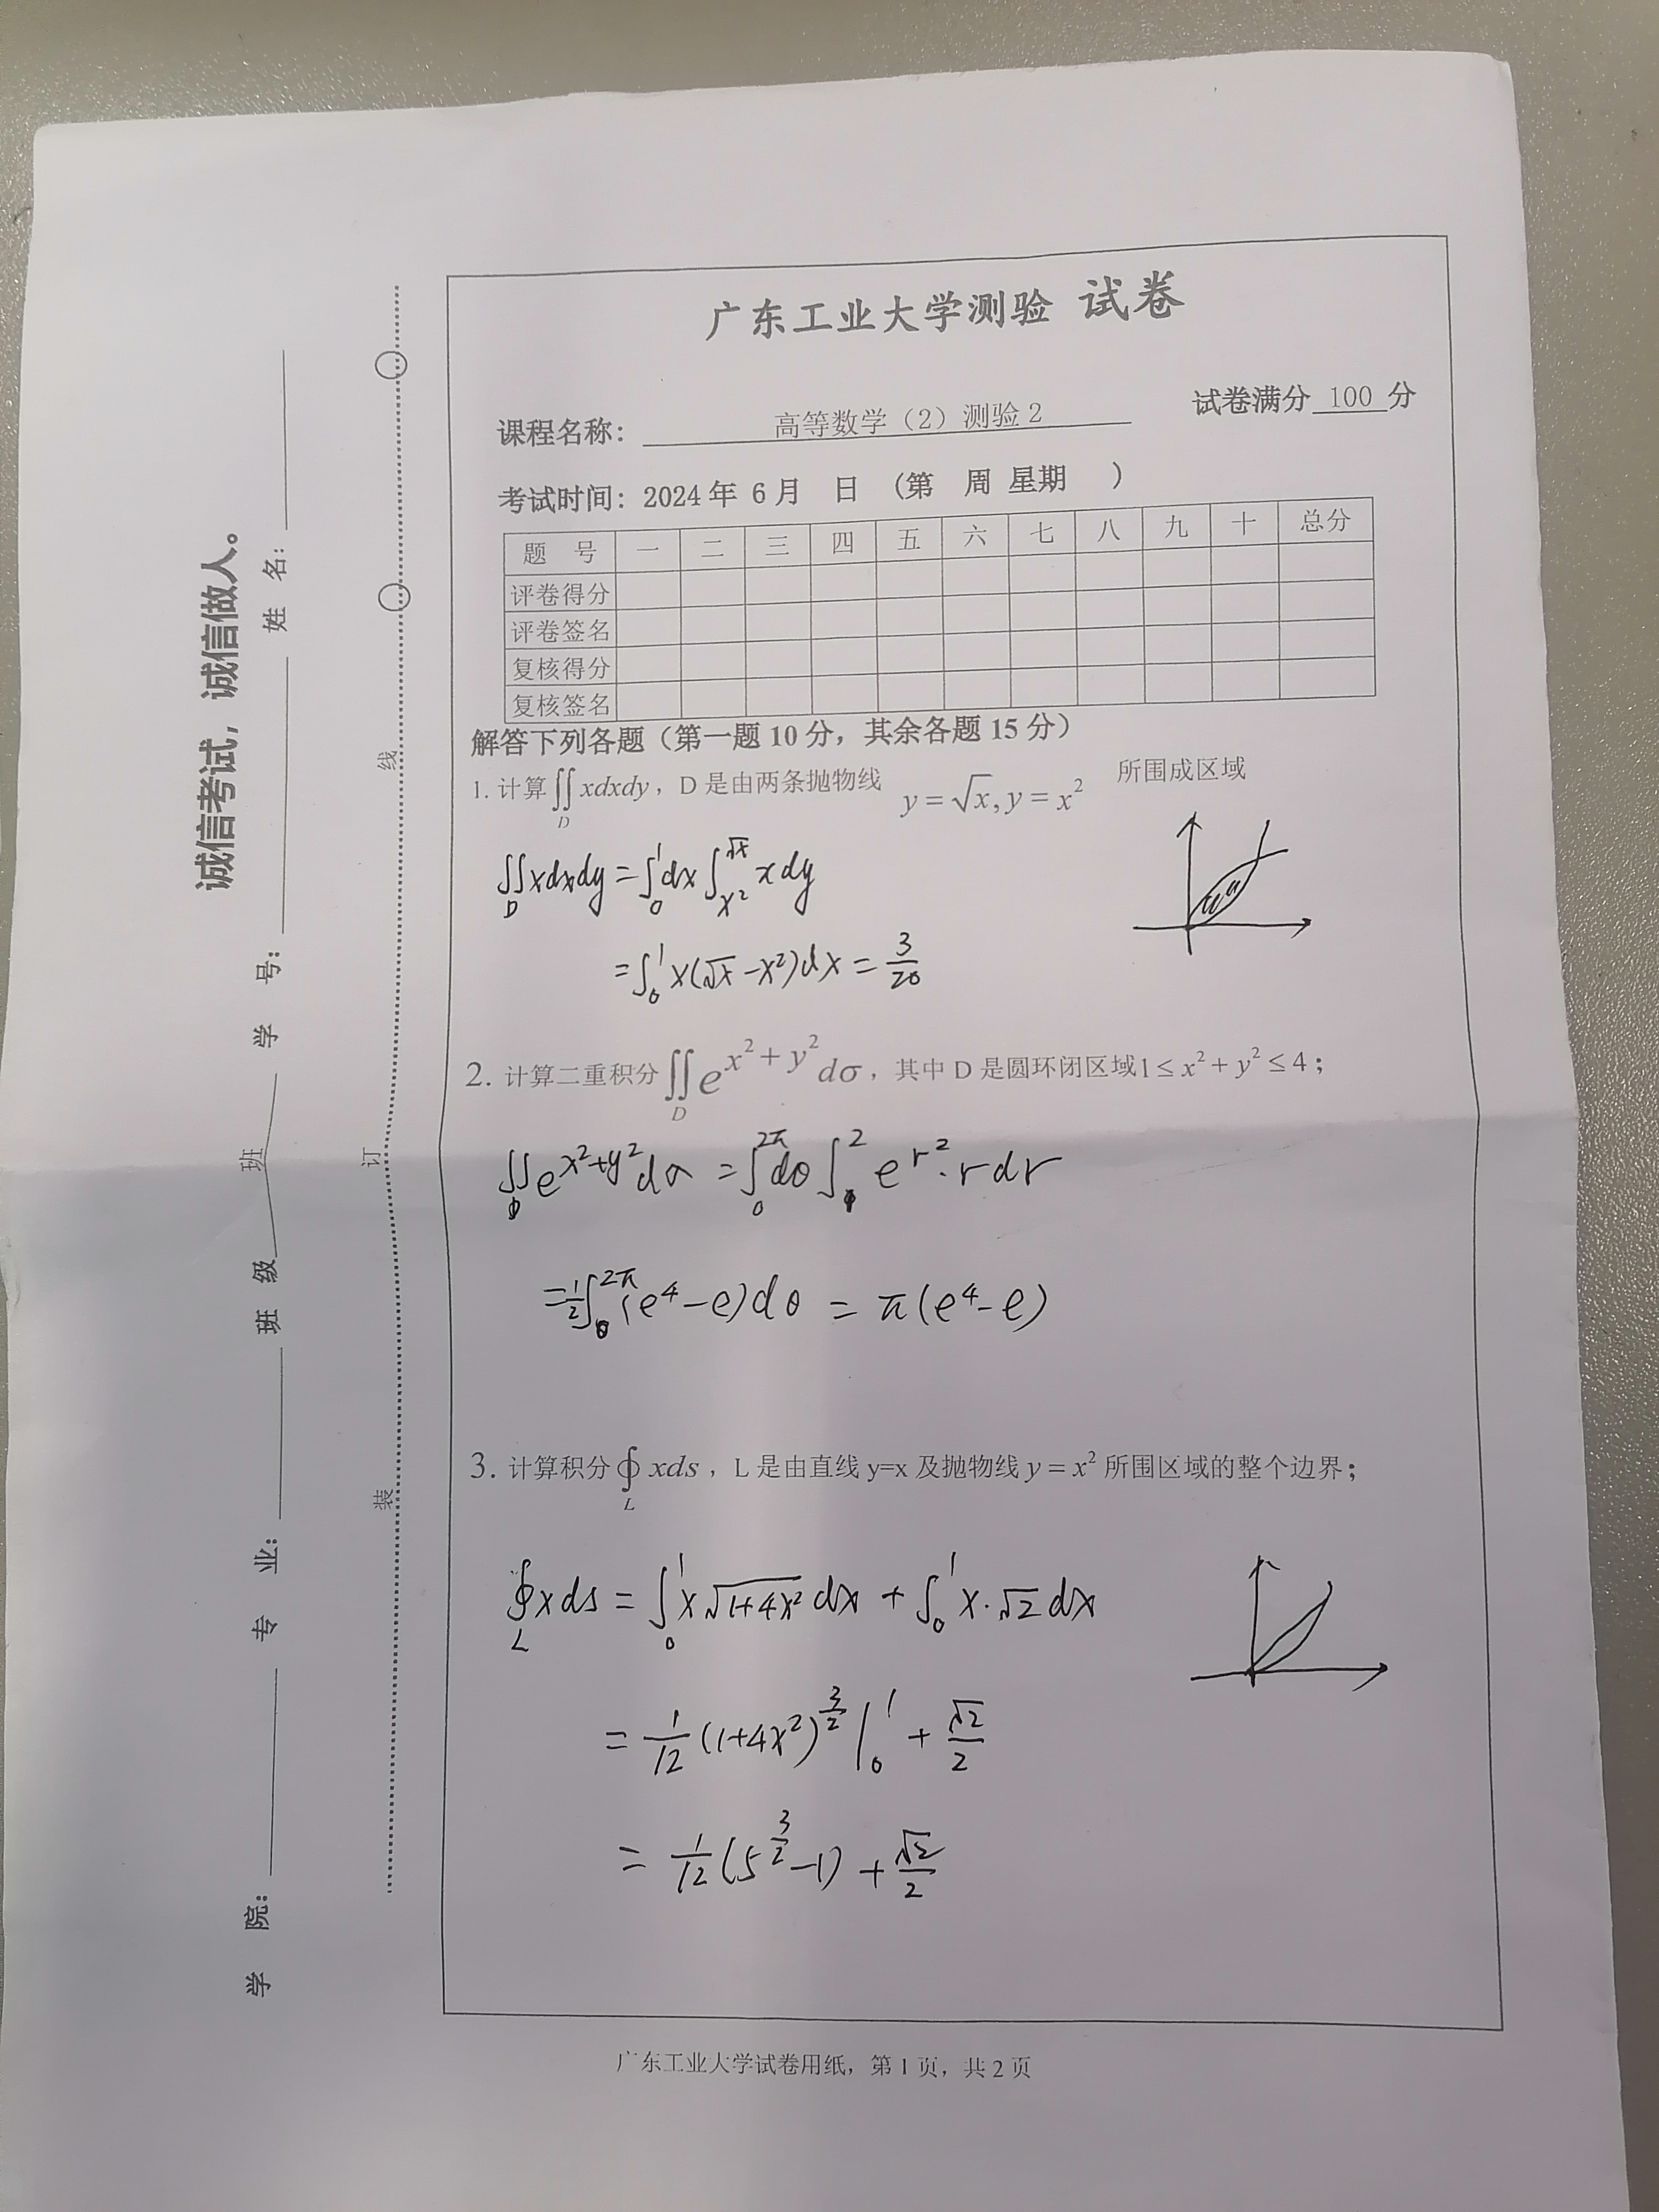 广东工业大学测验 试卷
课程名称: 高等数学（2）测验 2 试卷满分 100 分
考试时间: 2024 年 6 月 日 (第 周 星期 )
题 号 一 二 三 四 五 六 七 八 九 十 总分
评卷得分
评卷签名
复核得分
复核签名
解答下列各题（第一题 10 分，其余各题 15 分）
1. 计算∬_D xdxdy，D 是由两条抛物线 y=√x, y=x² 所围成区域
∬_D xdxdy = ∫_0^1 dx ∫_{x²}^{√x} x dy
= ∫_0^1 x(√x - x²)dx = 3/20
2. 计算二重积分∬_D e^{x²+y²}dσ，其中 D 是圆环闭区域1≤x²+y²≤4；
∬_D e^{x²+y²}dσ = ∫_0^{2π} dθ ∫_1^2 e^{r²}·r dr
= 1/2 ∫_0^{2π} (e⁴-e)dθ = π(e⁴-e)
3. 计算积分∮_L xds，L 是由直线 y=x 及抛物线 y=x² 所围区域的整个边界；
∮_L xds = ∫_0^1 x√(1+4x²) dx + ∫_0^1 x·√2 dx
= 1/12 (1+4x²)^{3/2} |_0^1 + √2/2
= 1/12 (5^{3/2}-1) + √2/2
广东工业大学试卷用纸，第 1 页，共 2 页
诚信考试，诚信做人。
学 院: 专 业: 班 级 班 学 号: 姓 名:
装 订 线